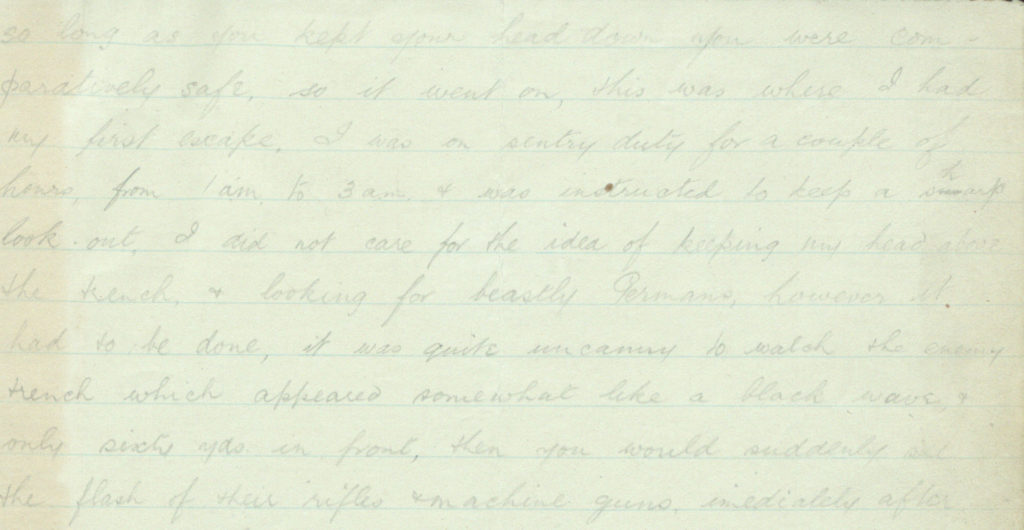 so long as you kept your head down you were com-
paratively safe, so it went on, this was where I had
my first escape. I was on sentry duty for a couple of
hours, from 1 am to 3 am & was instructed to keep a sharp
look-out, I did not care for the idea of keeping my head above
the trench, & looking for beastly Germans, however it
had to be done, it was quite uncanny to watch the enemy
trench which appeared somewhat like a black wave, &
only sixty yds in front, then you would suddenly see
the flash of their rifles & machine guns, imediatety after